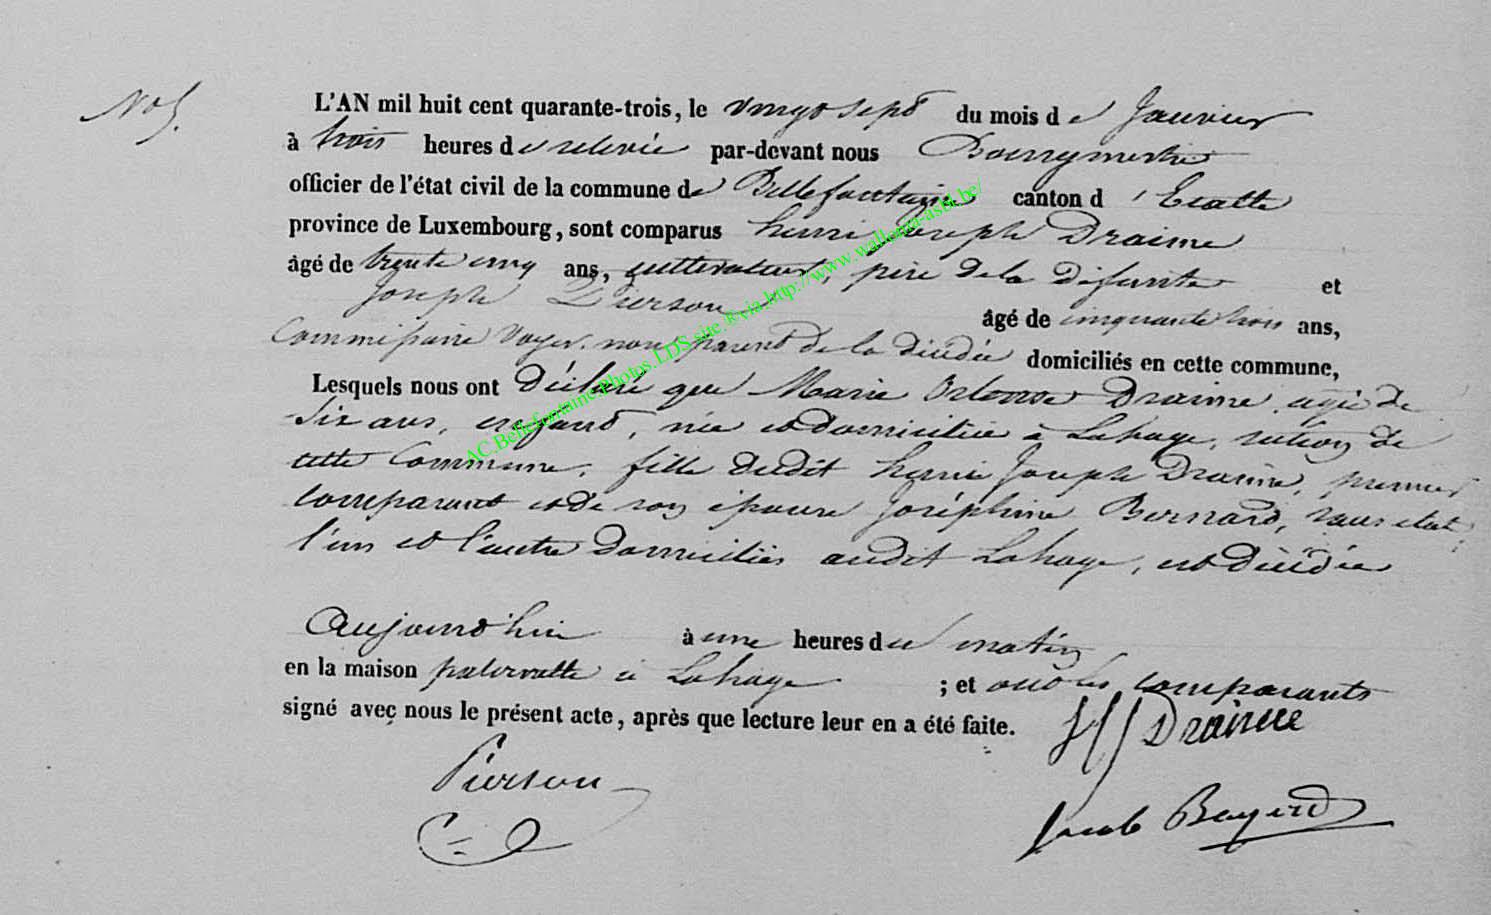 No 5.
L'AN mil huit cent quarante-trois, le vingt sept du mois de Janvier
à trois heures de relevée par-devant nous Bourgmestre
officier de l'état civil de la commune de Bellefontaine canton d'Etalle
province de Luxembourg, sont comparus henri Joseph Draime
âgé de trente cinq ans, cultivateur, père de la défunte et
Joseph Pierson âgé de cinquante trois ans,
Commissaire Voyer, non parent de la décédée domiciliés en cette commune,
Lesquels nous ont déclaré que Marie Draime, agée de
Six ans, enfant, née et domiciliée à Lahage, section de
cette Commune, fille dudit henri Joseph Draime, premier
comparant et de son épouse Joséphine Bernard, sans etat,
l'un et l'autre domiciliés audit Lahage, est décédée
Aujourd'hui à une heures du matin
en la maison paternelle à Lahage ; et ont les comparants
signé avec nous le présent acte, après que lecture leur en a été faite.
HJ Draime
Pierson
Jacob Bayard
AC.Bellefontaine.Photos.LDS.site ®via http://www.wallonia-asbl.be/